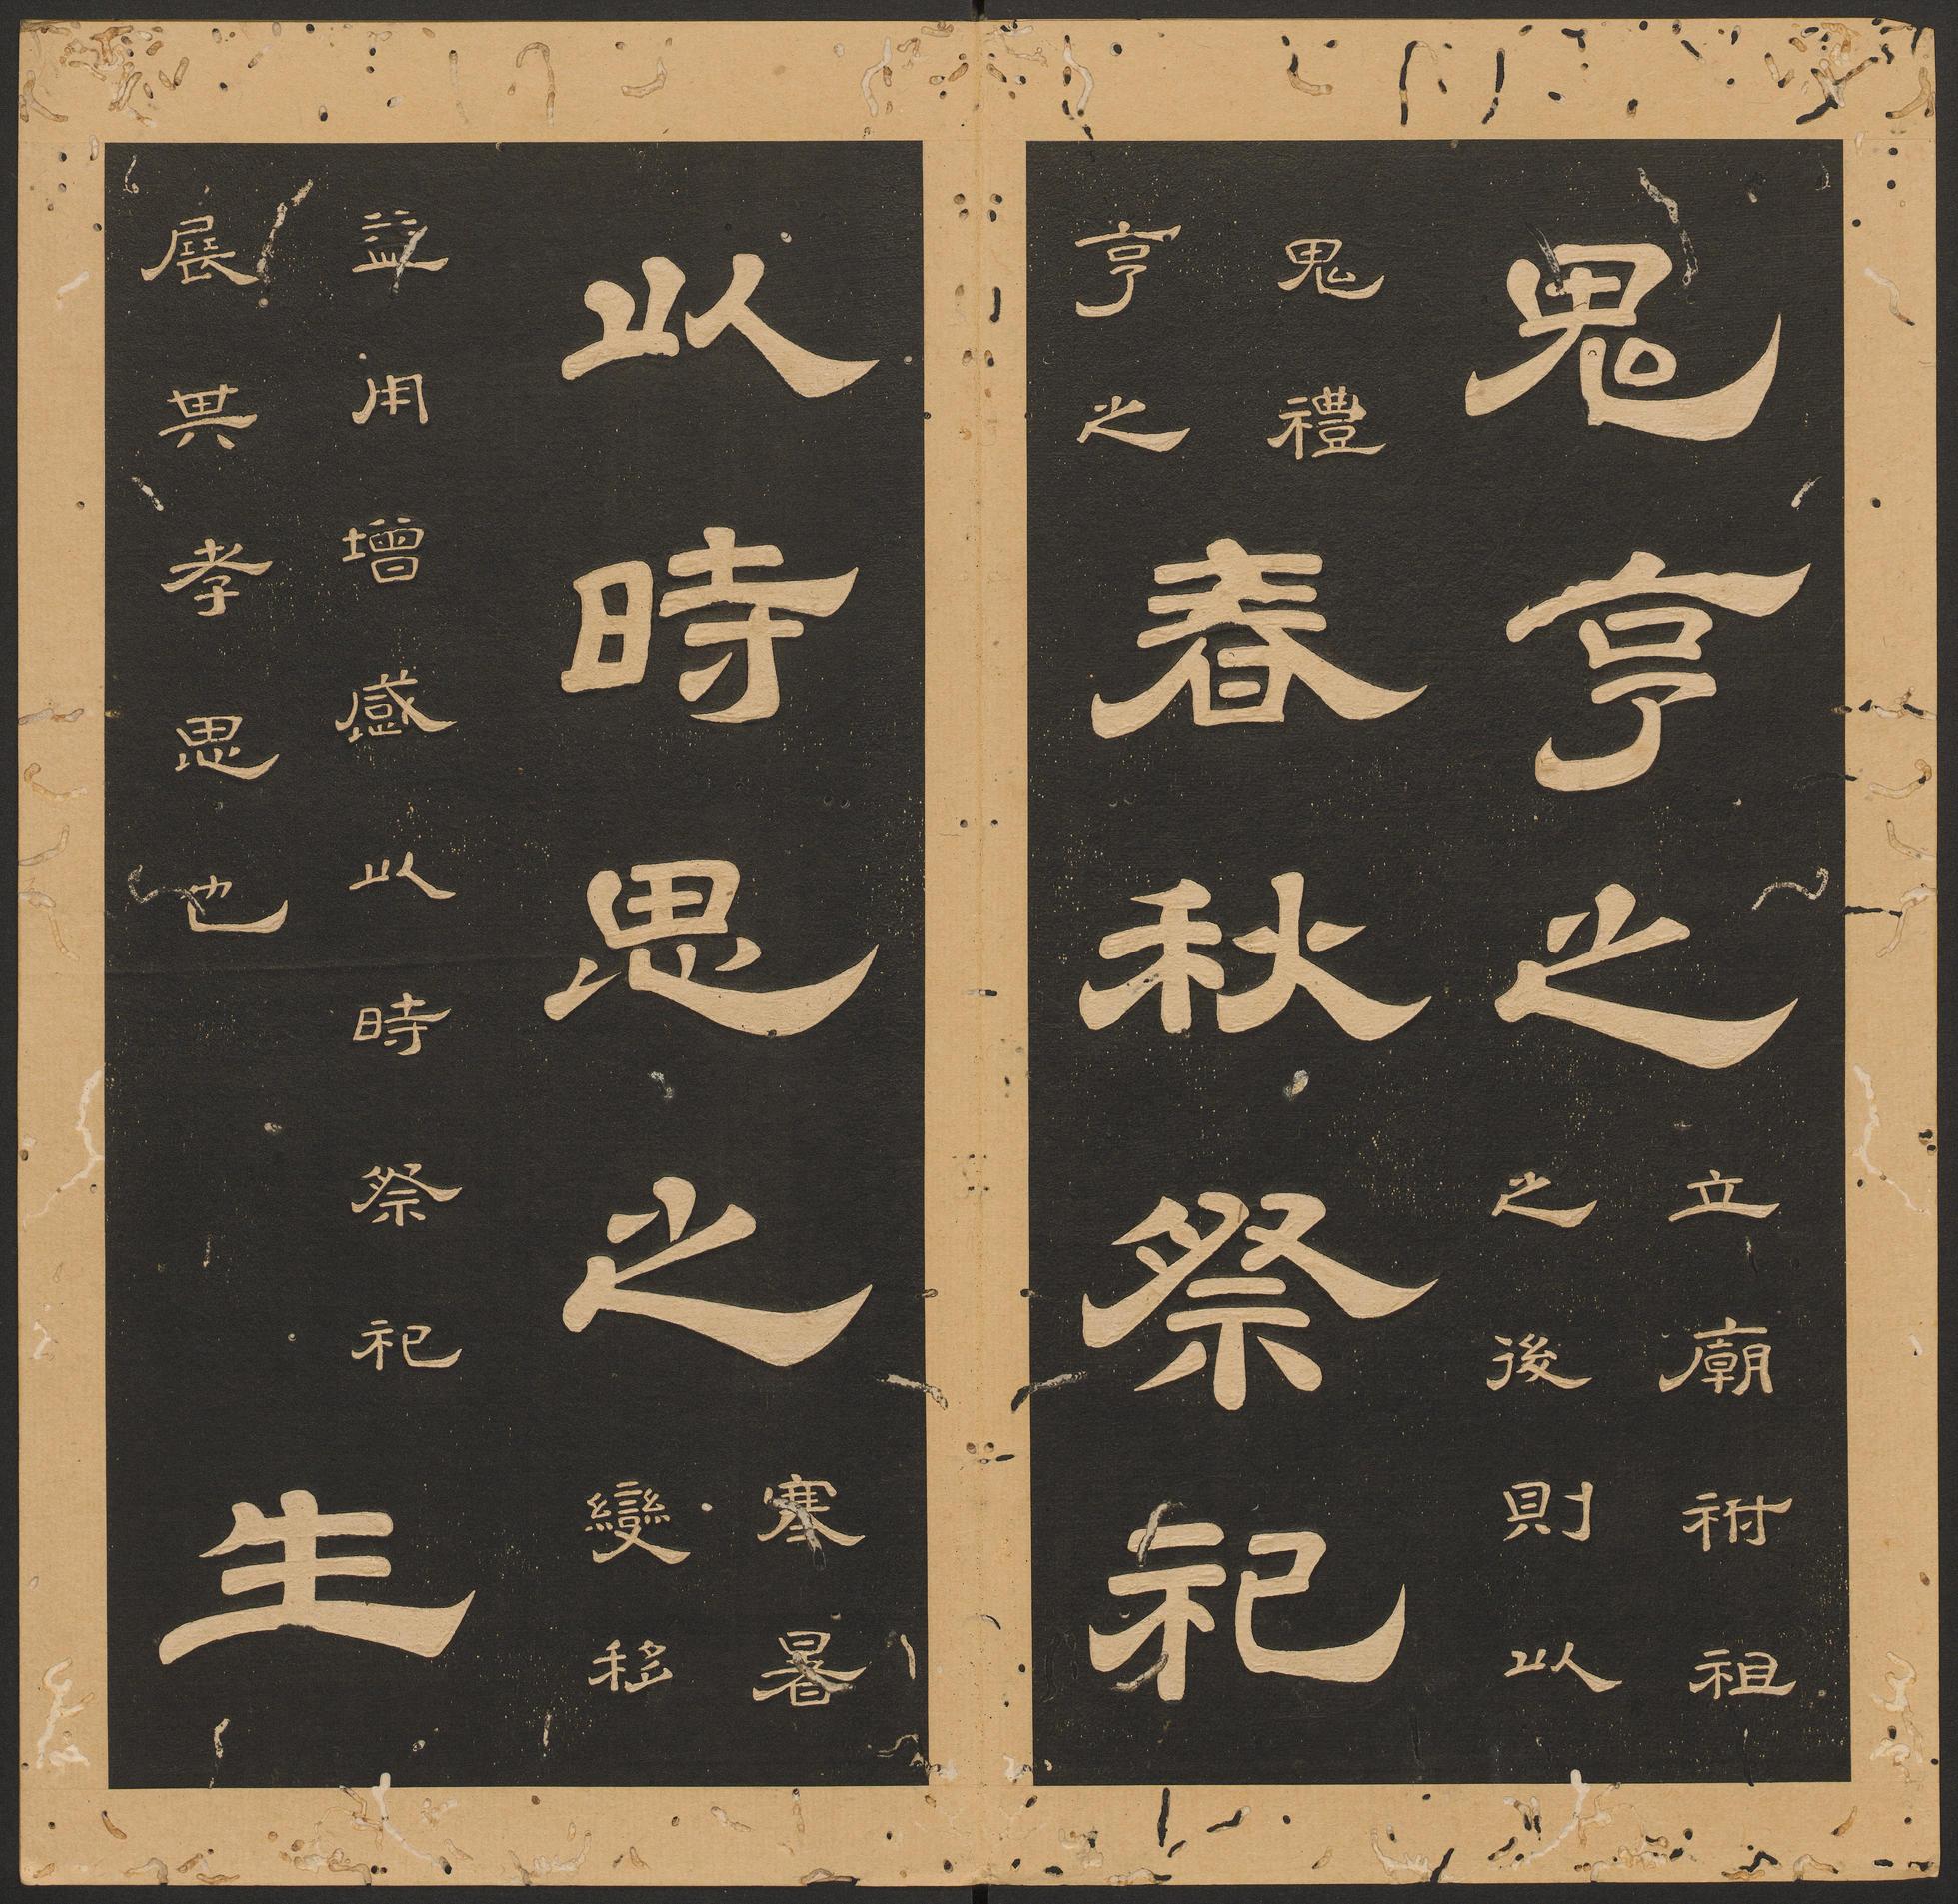 鬼亨之
立廟祔祖
之後則以
鬼禮
亨之
春秋祭祀
以時思之
寒暑
變移
益用增感以時祭祀
展其孝思也
生